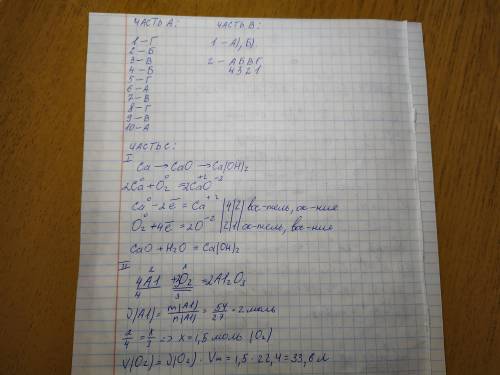 ЧАСТЬ А:
1 - Г
2 - Б
3 - В
4 - Б
5 - Г
6 - А
7 - В
8 - Г
9 - В
10 - А
ЧАСТЬ В:
1 - А), Б)
2 - А Б В Г
4 3 2 1
ЧАСТЬ С:
I
Ca → CaO → Ca(OH)₂
2Ca⁰ + O₂⁰ = 2Ca⁺²O⁻²
Ca⁰ - 2ē = Ca⁺² |4|2| вос-тель, ок-ние
O₂⁰ + 4ē = 2O⁻² |2|1| ок-тель, вос-ние
CaO + H₂O = Ca(OH)₂
II
2 x
4Al + 3O₂ = 2Al₂O₃
4 3
ν(Al) = m(Al)/M(Al) = 54/27 = 2 моль
2/4 = x/3 => x = 1,5 моль (O₂)
V(O₂) = ν(O₂) · Vm = 1,5 · 22,4 = 33,6 л